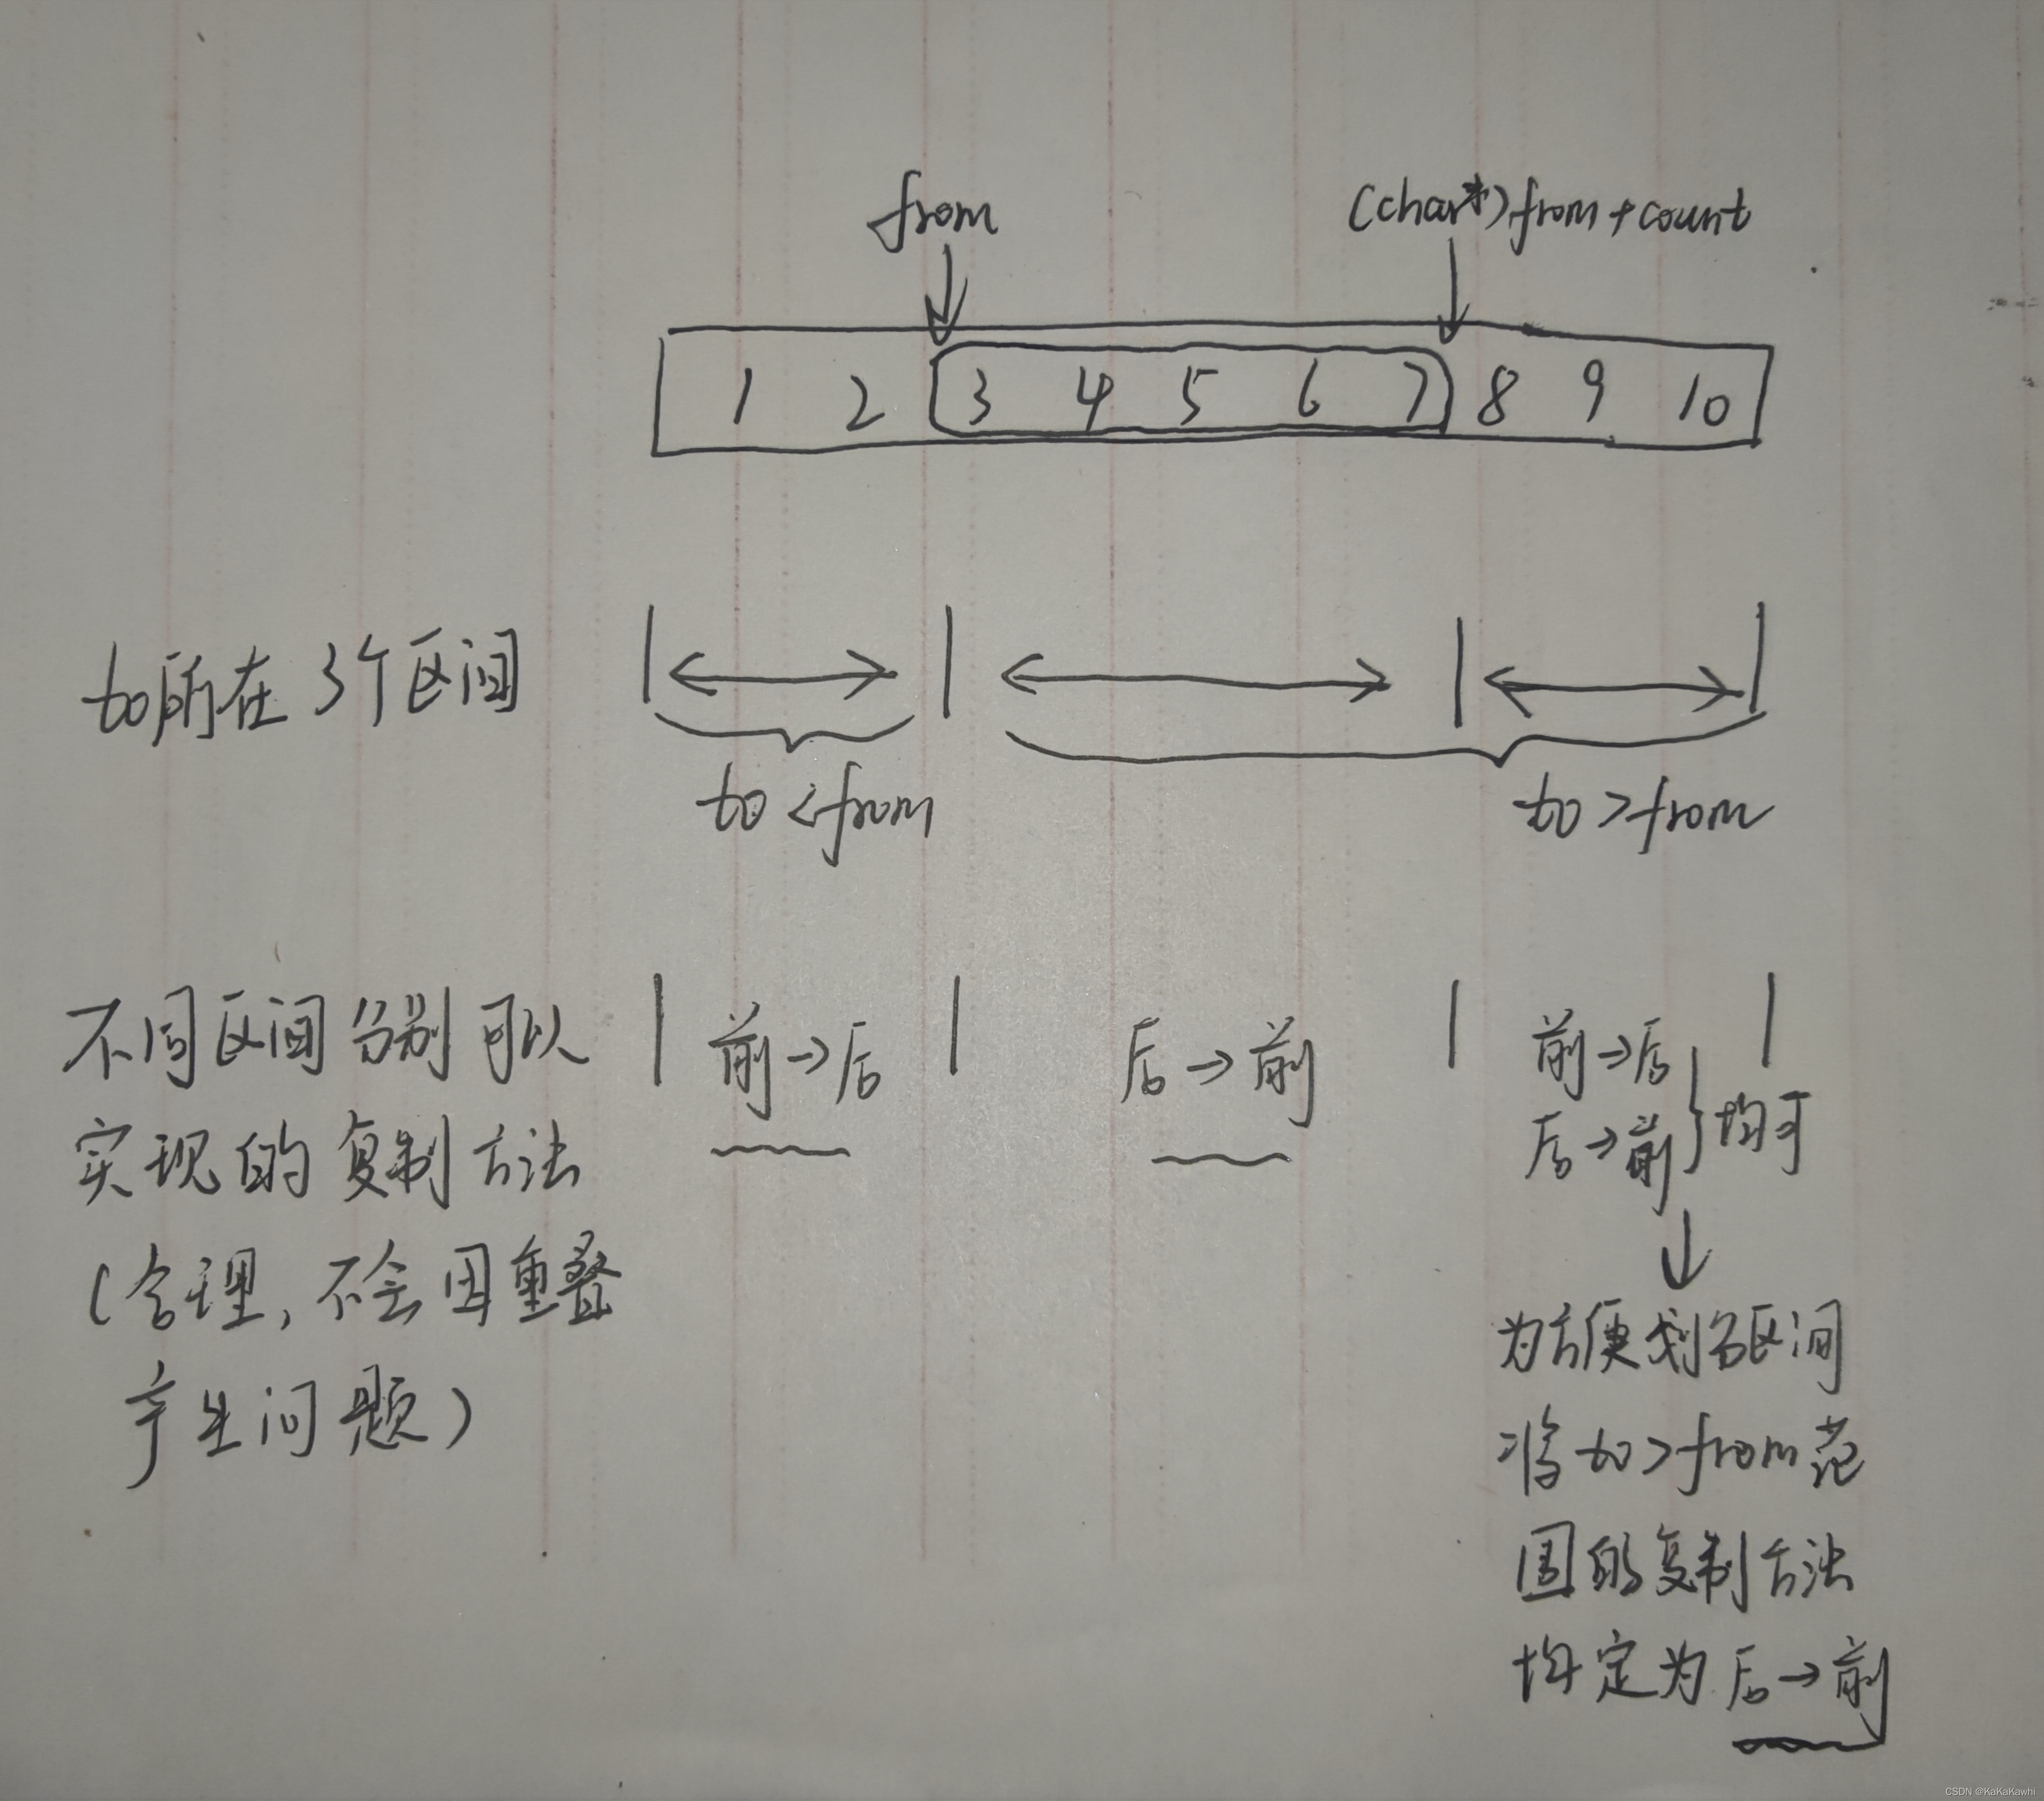 from (char*)from+count
1 2 3 4 5 6 7 8 9 10
to所在3个区间
to<from to>from
不同区间分别可以 前→后 后→前 前→后
实现的复制方法 后→前 均可
(合理,不会因重叠
产生问题)
为方便划分区间
将to>from范
围的复制方法
均定为后→前
CSDN @KaKaKawhi